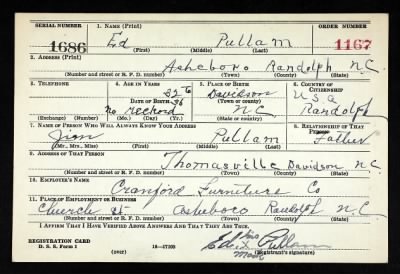 SERIAL NUMBER 1. NAME (Print) ORDER NUMBER
1686 Ed Pullam 1167
(First) (Middle) (Last)
2. ADDRESS (Print)
Asheboro Randolph N.C.
(Number and street or R. F. D. number) (Town) (County) (State)
3. TELEPHONE 4. AGE IN YEARS 5. PLACE OF BIRTH 6. COUNTRY OF CITIZENSHIP
32 to 36 Davidson U S A
DATE OF BIRTH (Town or county)
no record N C Randolph
(Exchange) (Number) (Mo.) (Day) (Yr.) (State or country)
7. NAME OF PERSON WHO WILL ALWAYS KNOW YOUR ADDRESS 8. RELATIONSHIP OF THAT PERSON
Jim Pullam Father
(Mr., Mrs., Miss) (First) (Middle) (Last)
9. ADDRESS OF THAT PERSON
Thomasville Davidson N.C.
(Number and street or R. F. D. number) (Town) (County) (State)
10. EMPLOYER'S NAME
Cranford Furniture Co
11. PLACE OF EMPLOYMENT OR BUSINESS
Church St. Asheboro Randolph N.C.
(Number and street or R. F. D. number) (Town) (County) (State)
I AFFIRM THAT I HAVE VERIFIED ABOVE ANSWERS AND THAT THEY ARE TRUE.
his
Ed X Pullam
Mark
REGISTRATION CARD
D. S. S. Form 1 (over) 16—17105